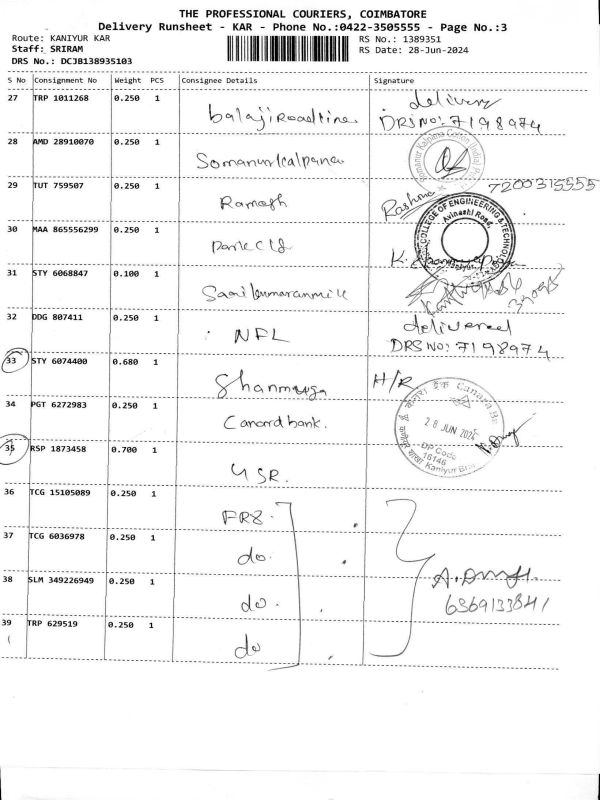 THE PROFESSIONAL COURIERS, COIMBATORE
Delivery Runsheet - KAR - Phone No.:0422-3505555 - Page No.:3
Route: KANIYUR KAR
RS No.: 1389351
Staff: SRIRAM
RS Date: 28-Jun-2024
DRS No.: DCJB138935103
S No Consignment No Weight PCS Consignee Details Signature
27 TRP 1011268 0.250 1 balajiRoadline delivery
DRSNO: 7198974
28 AMD 28910070 0.250 1
29 TUT 759507 0.250 1 Ramesh Rashmi 7200315555
COLLEGE OF ENGINEERING & TECHNOLOGY
Avinashi Road,
30 MAA 865556299 0.250 1
31 STY 6068847 0.100 1
32 DDG 807411 0.250 1 NFL delivered
DRS NO: 7198974
33 STY 6074400 0.680 1 Shanmuga H/R
34 PGT 6272983 0.250 1 Canard bank.
28 JUN 2024
DP Code
16146
35 RSP 1873458 0.700 1 4 SR.
36 TCG 15105089 0.250 1 FR8.
37 TCG 6036978 0.250 1 do.
38 SLM 349226949 0.250 1 do.
6369133841
39 TRP 629519 0.250 1 do